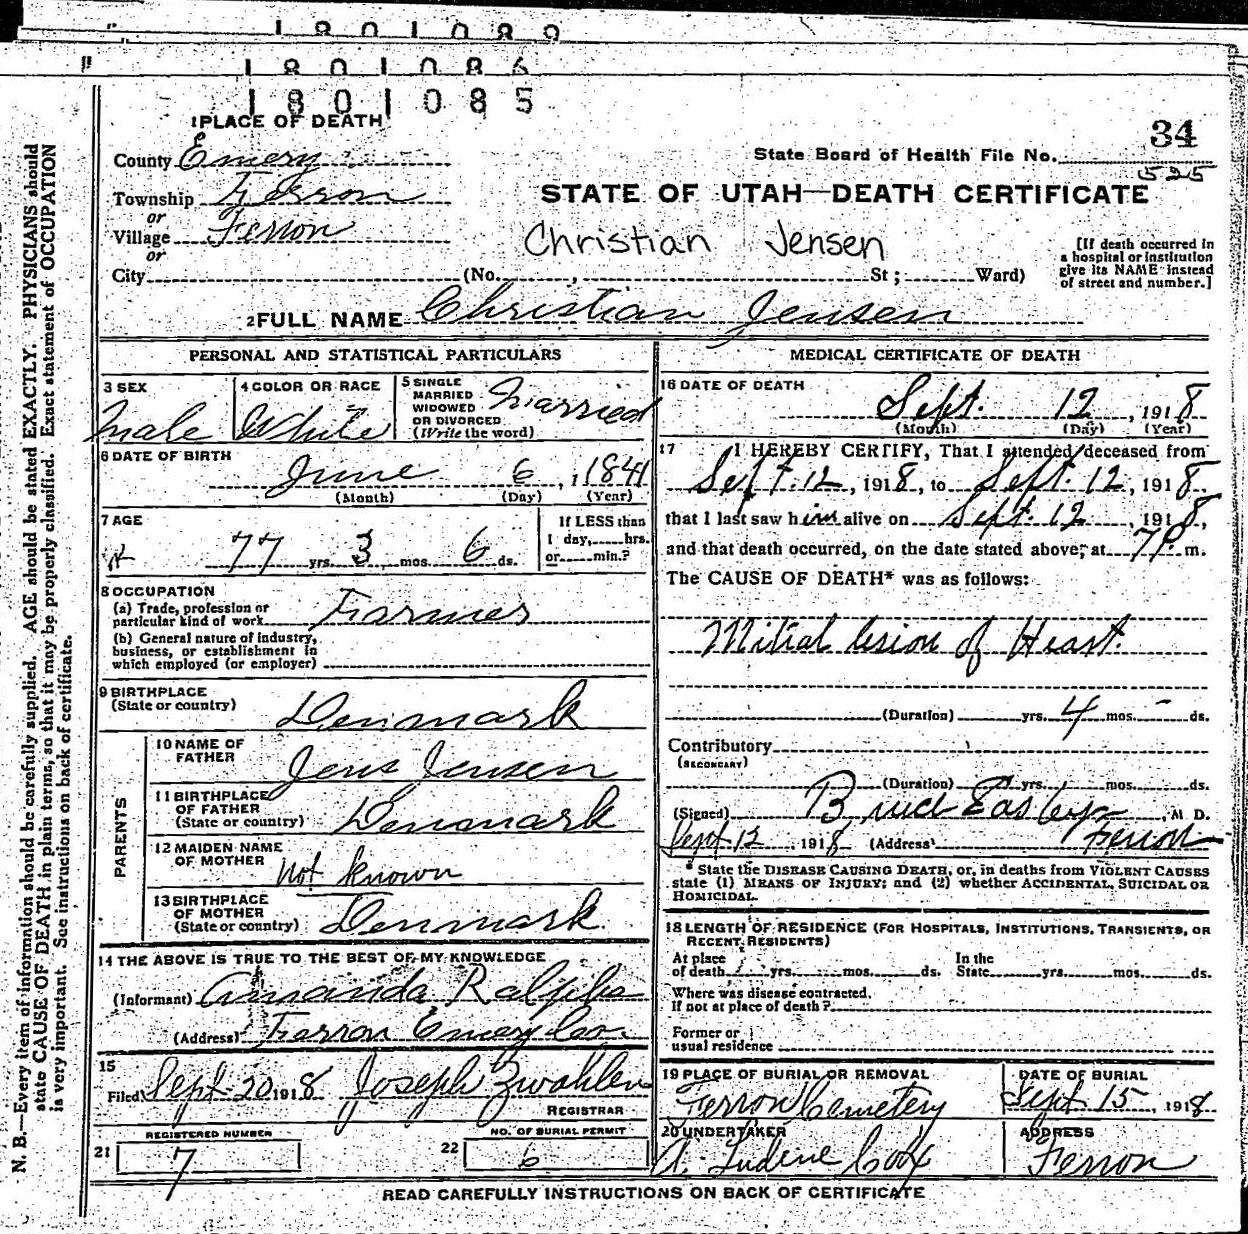 1801089
1801086
1801085
1 PLACE OF DEATH
County Emery
Township Ferron
or
Village Ferron
or
City (No. , St ; Ward)
34
State Board of Health File No.
525
STATE OF UTAH—DEATH CERTIFICATE
Christian Jensen
[If death occurred in
a hospital or institution
give its NAME instead
of street and number.]
2 FULL NAME Christian Jensen
PERSONAL AND STATISTICAL PARTICULARS
3 SEX
Male
4 COLOR OR RACE
White
5 SINGLE
MARRIED
WIDOWED
OR DIVORCED
(Write the word)
Married
6 DATE OF BIRTH
June 6, 1841
(Month) (Day) (Year)
7 AGE
77 yrs. 3 mos. 6 ds.
If LESS than
1 day, hrs.
or min.?
8 OCCUPATION
(a) Trade, profession or
particular kind of work Farmer
(b) General nature of industry,
business, or establishment in
which employed (or employer)
9 BIRTHPLACE
(State or country)
Denmark
PARENTS
10 NAME OF
FATHER
Jens Jensen
11 BIRTHPLACE
OF FATHER
(State or country)
Denmark
12 MAIDEN NAME
OF MOTHER
Not known
13 BIRTHPLACE
OF MOTHER
(State or country)
Denmark.
14 THE ABOVE IS TRUE TO THE BEST OF MY KNOWLEDGE
(Informant) Amanda Ralphs
(Address) Farron Emery Co.
15
Filed Sept 20 1918 Joseph Zwahlen
REGISTRAR
REGISTERED NUMBER
21 7
NO. OF BURIAL PERMIT
22 6
MEDICAL CERTIFICATE OF DEATH
16 DATE OF DEATH
Sept. 12, 1918
(Month) (Day) (Year)
17 I HEREBY CERTIFY, That I attended deceased from
Sept. 12, 1918, to Sept. 12, 1918.
that I last saw him alive on Sept. 12, 1918,
and that death occurred, on the date stated above, at 7 P. m.
The CAUSE OF DEATH* was as follows:
Mitial lesion of Heart.
(Duration) yrs. 4 mos. - ds.
Contributory
(SECONDARY)
(Duration) yrs. mos. ds.
(Signed) Bruce Easley, M D.
Sept. 12, 1918 (Address) Ferron
* State the DISEASE CAUSING DEATH, or, in deaths from VIOLENT CAUSES
state (1) MEANS OF INJURY; and (2) whether ACCIDENTAL, SUICIDAL OR
HOMICIDAL.
18 LENGTH OF RESIDENCE (FOR HOSPITALS, INSTITUTIONS, TRANSIENTS, OR
RECENT RESIDENTS)
At place
of death yrs. mos. ds.
In the
State yrs. mos. ds.
Where was disease contracted.
If not at place of death?
Former or
usual residence
19 PLACE OF BURIAL OR REMOVAL
Ferron Cemetery
DATE OF BURIAL
Sept 15, 1918
20 UNDERTAKER
A. Ludene Cox
ADDRESS
Ferron
READ CAREFULLY INSTRUCTIONS ON BACK OF CERTIFICATE
N. B.—Every item of information should be carefully supplied. AGE should be stated EXACTLY. PHYSICIANS should
state CAUSE OF DEATH in plain terms, so that it may be properly classified. Exact statement of OCCUPATION
is very important. See instructions on back of certificate.